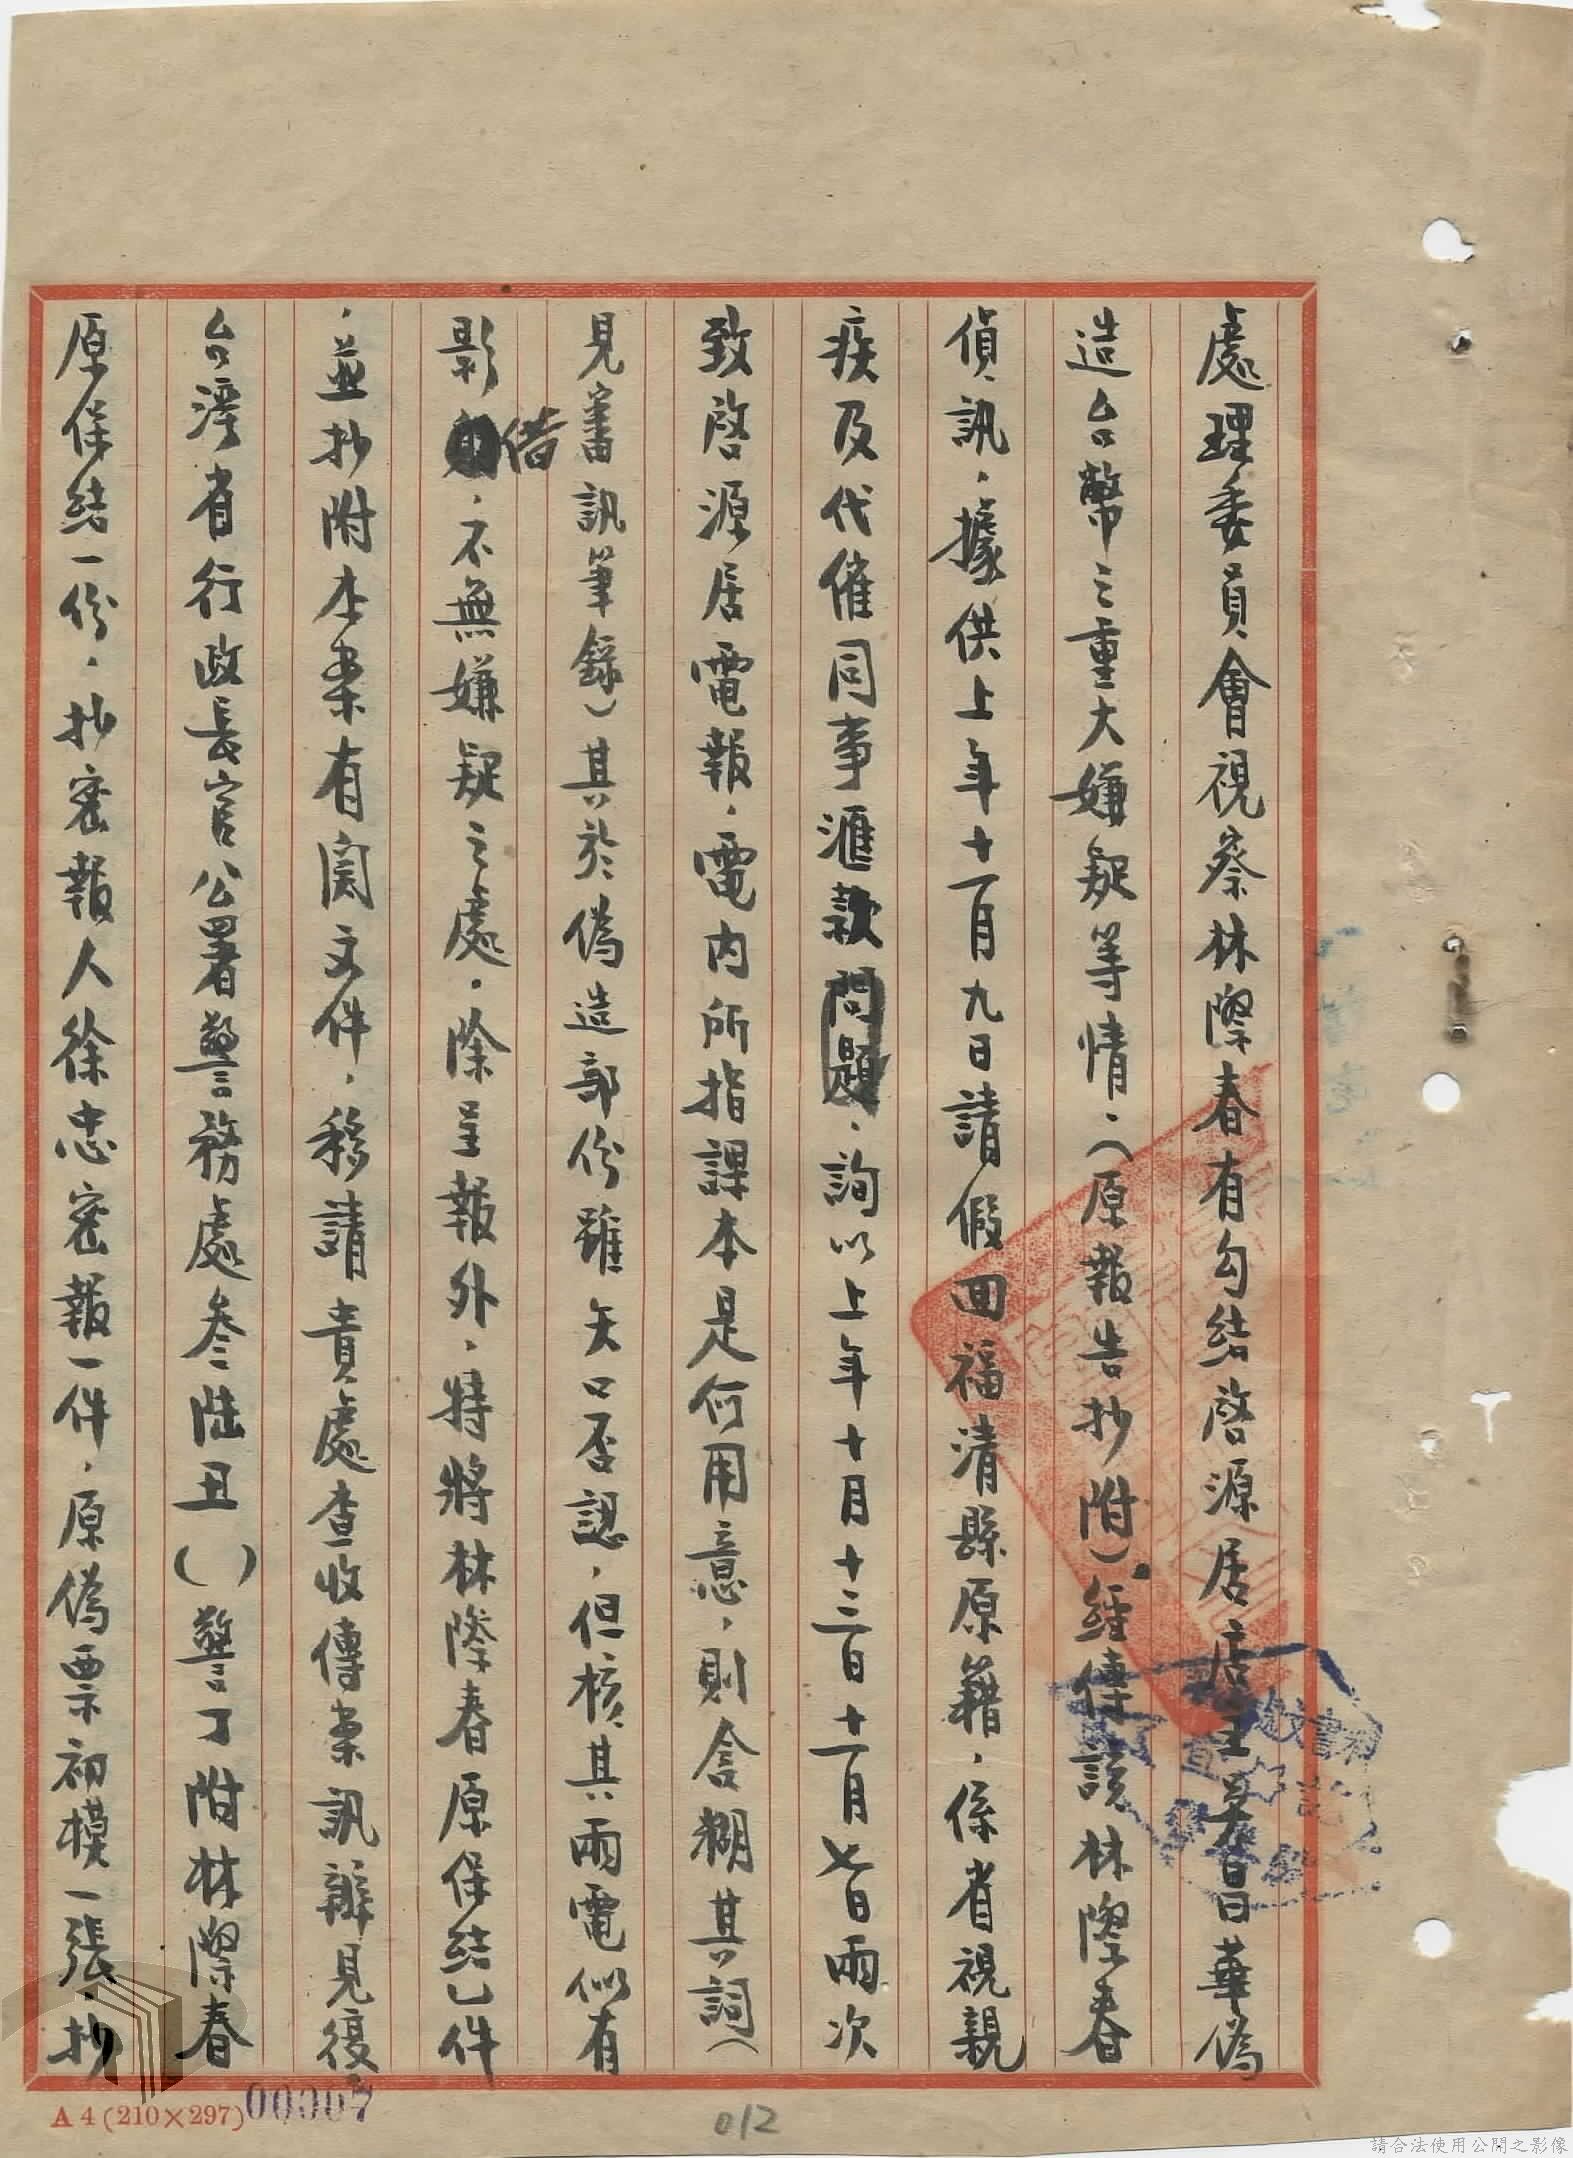 處理委員會視察林際春有勾結啓源居店主吳昌華偽
造台幣之重大嫌疑等情．（原報告抄附）經傳該林際春
偵訊．據供上年十一月九日請假回福清縣原籍．係省視親
疾及代催同事滙款問題．詢以上年十月十三日十一月七日兩次
致啓源居電報．電内所指課本是何用意．則含糊其詞（
見審訊筆錄）其於偽造部份雖矢口否認．但核其兩電似有
影借．不無嫌疑之處．除呈報外．特將林際春原保結乙件
．並抄附本案有関文件．移請貴處查收傳案訊辦見復．
台灣省行政長官公署警務處叁陆丑（　）警丁附林際春
原保結一份．抄密報人徐忠密報一件．原偽票初模一張．抄
A4(210×297)
00007
012
請合法使用公開之影像